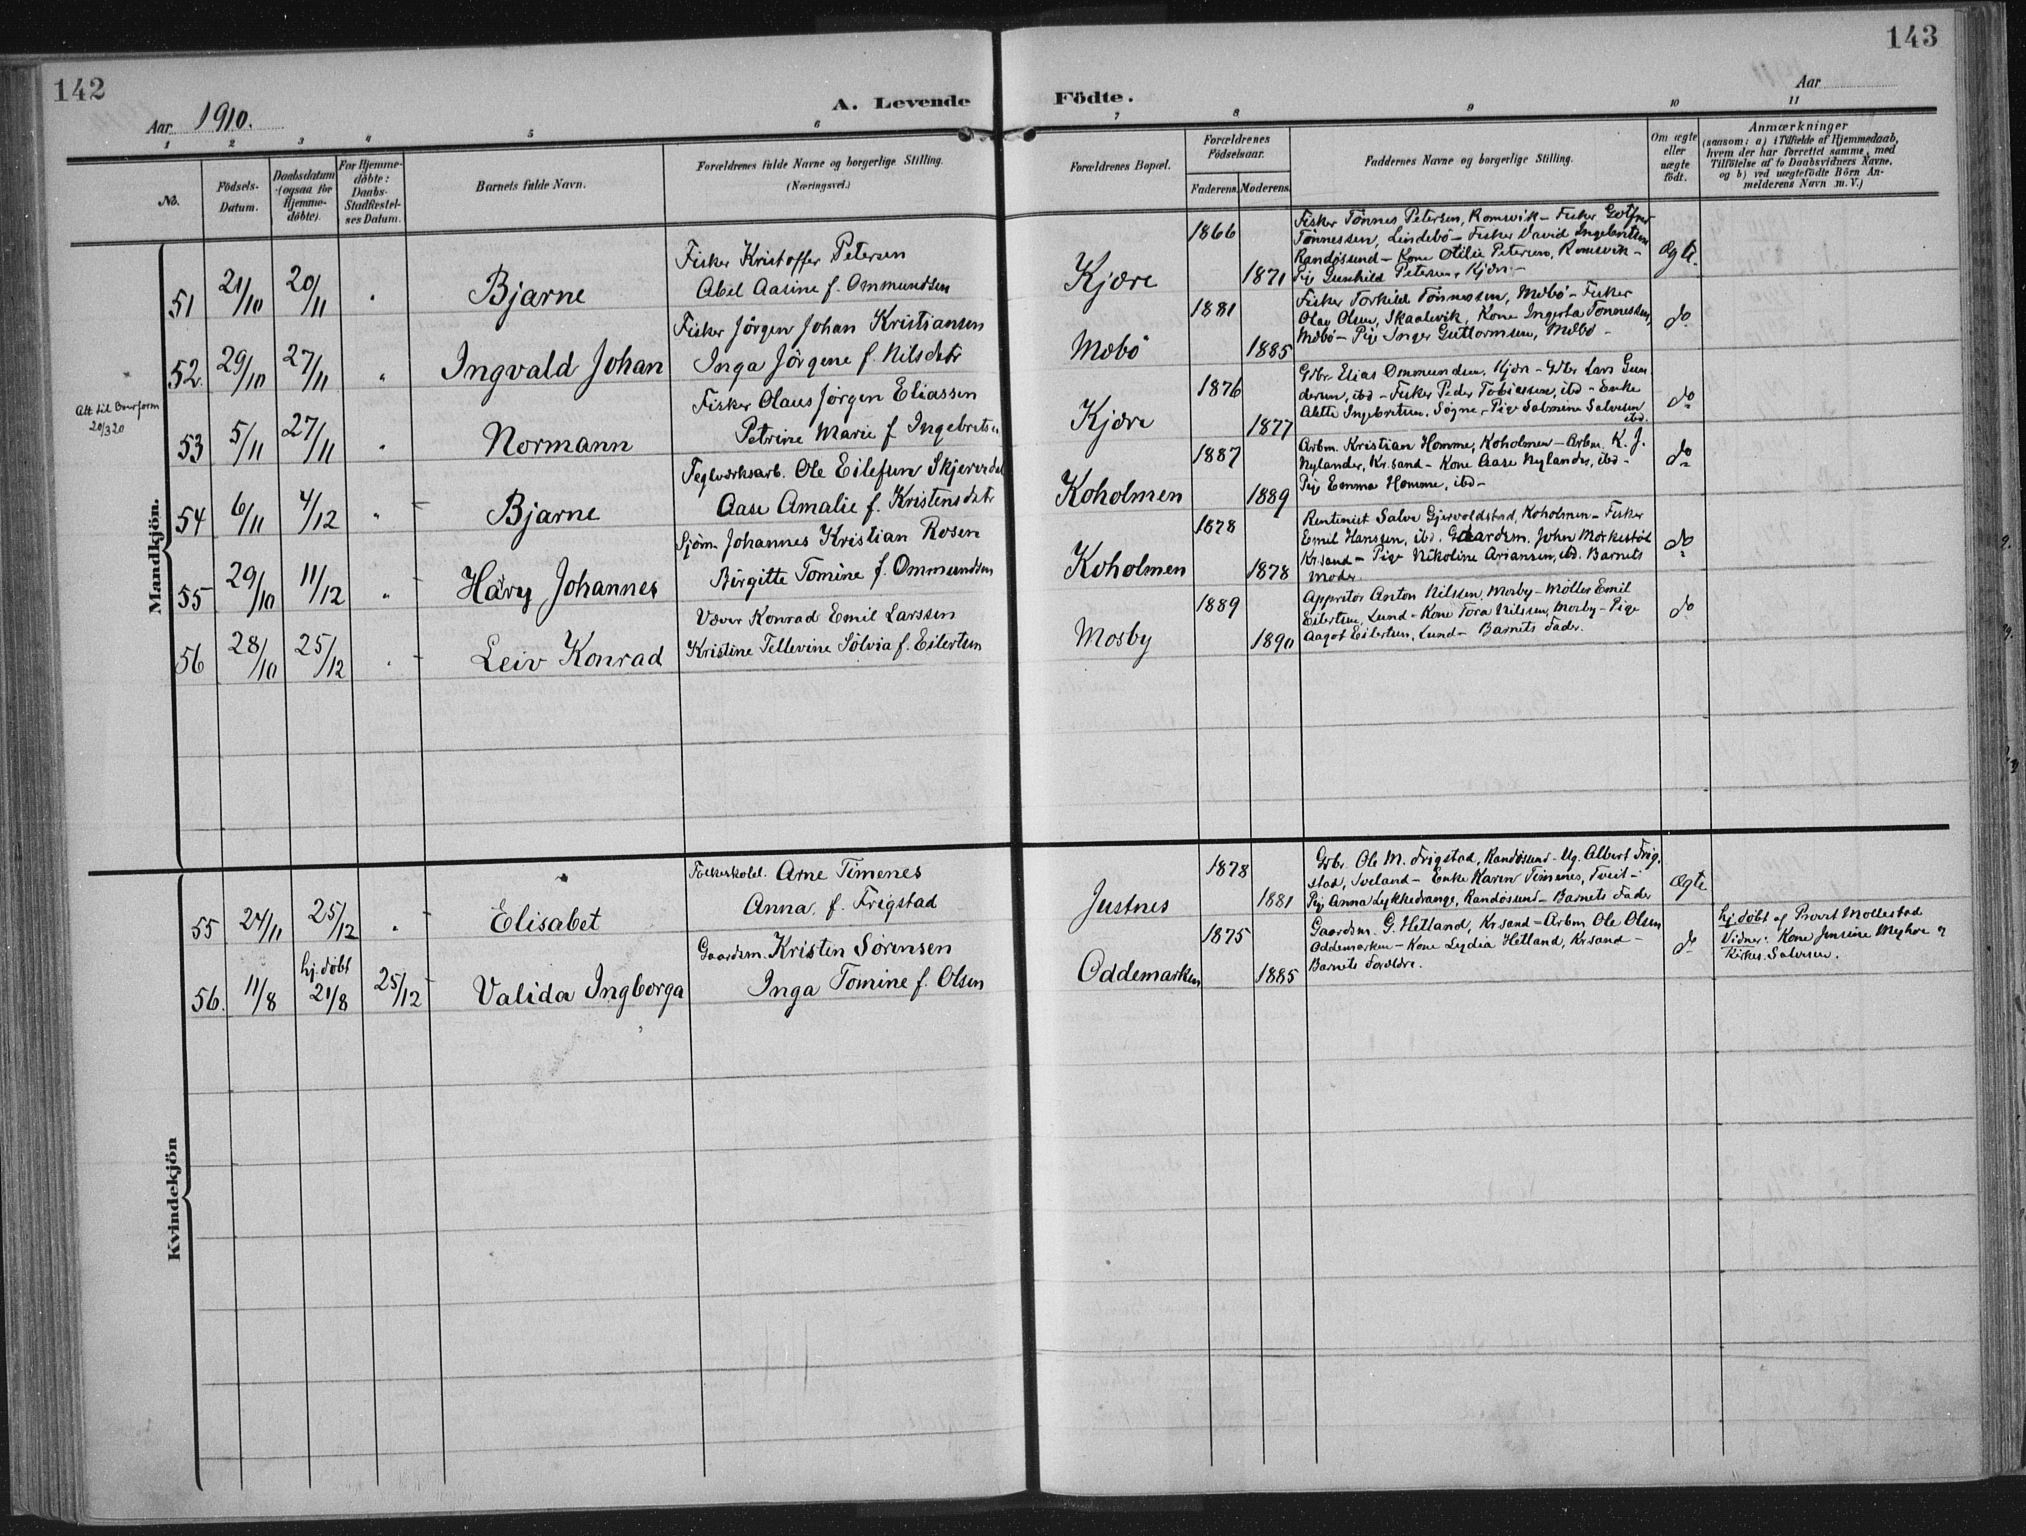 142
143
Aar 1910.
A. Levende Födte.
Aar
1 2 3 4 5 6 7 8 9 10 11
No.
Födsels-Datum.
Daabsdatum (ogsaa for Hjemme-döbte).
For Hjemme-döbte: Daabs-Stadfæstel-ses Datum.
Barnets fulde Navn.
Forældrenes fulde Navne og borgerlige Stilling.
(Næringsvei.)
Forældrenes Bopæl.
Forældrenes Födselsaar.
Faderens. Moderens.
Faddernes Navne og borgerlige Stilling.
Om ægte eller uægte födt.
Anmærkninger
(saasom: a) i Tilfælde af Hjemmedaab,
hvem der har forrettet samme, med
Tilföielse af to Daabsvidners Navne,
og b) ved uægtefödte Börn An-
melderens Navn m. V.)
Mandkjön.
51 21/10 20/11 " Bjarne
Fisker Kristoffer Petersen
Abel Aasine f. Ommundsen
Kjære 1866 1871
Fisker Tönnes Petersen, Romsvik – Fisker Gotfred
Tönnessen, Lindebö – Fisker David Ingebretsen
Randösund – Kone Otilie Petersen, Romsvik –
Pige Gunhild Petersen, Kjære –
Ægte.
52. 29/10 27/11 " Ingvald Johan
Fisker Jörgen Johan Kristiansen
Inga Jörgene f. Nilsdatr
Mæbö 1881 1885
Fisker Torkild Tönnessen, Mæbö – Fisker
Olav Olsen, Skaalevik, Kone Ingerta Tönnessen,
Mæbö – Pige Inger Guttormsen, Mæbö –
do
Att til
20/3 20
53 5/11 27/11 " Normann
Fisker Olaus Jörgen Eliassen
Petrine Marie f Ingebretsen
Kjære 1876 1877
Gbr. Elias Ommundsen, Kjære – Gbr Lars Gun
dersen, ibd – Fisker Peder Tobiassen, ibd – Enke
Alette Ingebretsen, Søgne – Pige Salmine Salvesen
ibd.
do
54 6/11 4/12 " Bjarne
Teglværksarb. Ole Eilefsen Skjerendal
Aase Amalie f. Kristensdatr
Koholmen 1887 1889
Arbm. Kristian Homme, Koholmen – Arbm. K. J.
Nylander, Kr.sand – Kone Aase Nylander, ibd –
Pige Emma Homme, ibd –
do
55 29/10 11/12 " Harry Johannes
Sjöm. Johannes Kristian Rosen
Birgitte Tomine f. Ommundsen
Koholmen 1878 1878
Rentenist Salve Gjervoldstad, Koholmen – Fisker
Emil Hanssen, ibd. Gaardsm. John Mørkestøl
Kr.sand – Pige Nikoline Ariansen, ibd. Barnets
Moder.
do
56 28/10 25/12 Leiv Konrad
Væver Konrad Emil Larssen
Kristine Tellevine Sölvia f. Eilertsen
Mosby 1889 1890
Appretör Anton Nilssen, Mosby – Möller Emil
Eilertsen, Lund – Kone Tora Nilssen, Mosby – Pige
Aagot Eilertsen, Lund – Barnets Fader.
do
Kvindekjön
55 24/11 25/12 " Elisabet
Arne Timenes
Anna f. Frigstad
Justnes 1878 1881
Gbr. Ole M. Frigstad, Randösund – Ug. Albert Frig-
stad, Iveland – Enke Karen Timenes, Tveit –
Pige Anna Lykkedrange, Randösund – Barnets Fader
Ægte
56. 11/8 hj. döbt 21/8 25/12 Valida Ingborga
Gaardsm. Kristen Sörensen
Inga Tomine f. Olsen
Oddemarken 1875 1885
Gaardsm. G. Hetland, Kr.sand – Arbm Ole Olsen
Oddemarken – Kone Lydia Hetland, Kr.sand –
Barnets Forældre.
do
hj. döbt af Provst Mollestad
Vidner: Kone Jensine Myhre og
Kirkes. Salvesen.